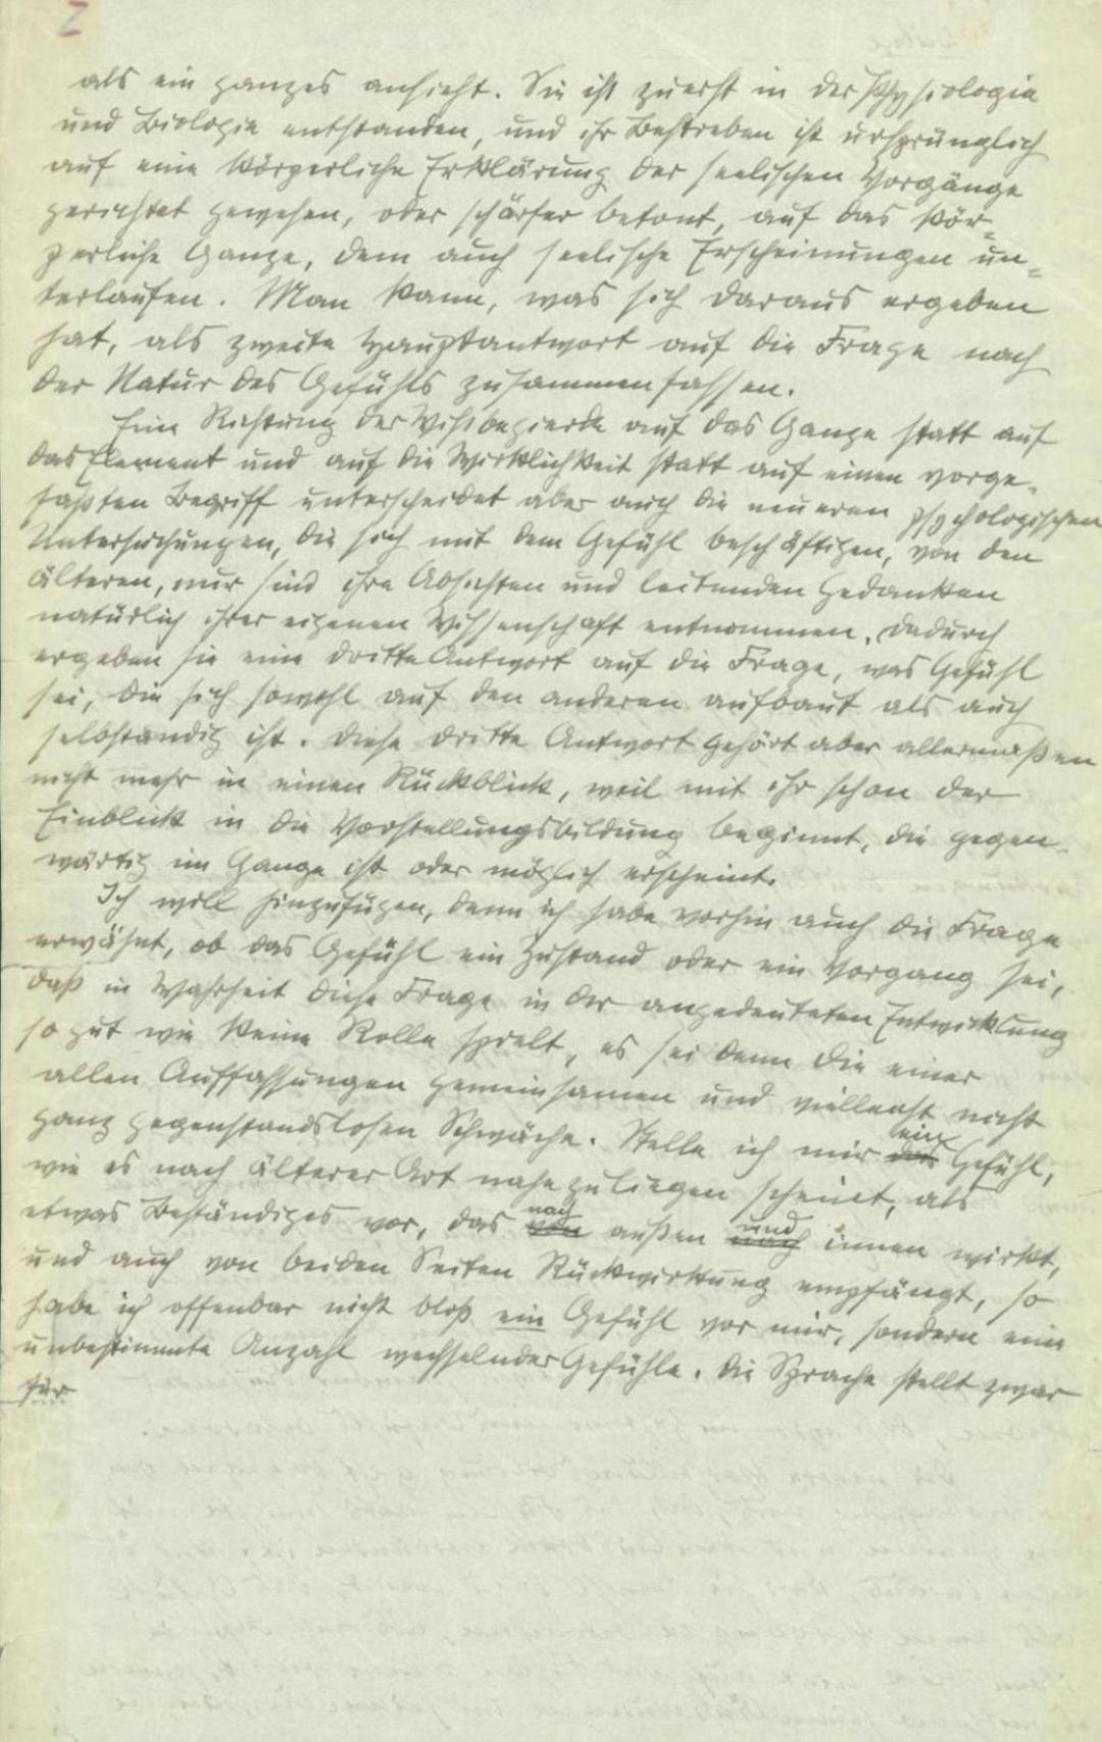 2
als ein ganzes ansieht. Sie ist zuerst in der Physiologie
und Biologie entstanden, und ihr Bestreben ist ursprünglich
auf eine körperliche Erklärung der seelischen Vorgänge
gerichtet gewesen, oder schärfer betont, auf das kör-
perliche Ganze, dem auch seelische Erscheinungen un-
terlaufen. Man kann, was sich daraus ergeben
hat, als zweite Hauptantwort auf die Frage nach
der Natur des Gefühls zusammenfassen.
Eine Richtung der Wißbegierde auf das Ganze statt auf
das Element und auf die Wirklichkeit statt auf einen vorge-
faßten Begriff unterscheidet aber auch die neueren psychologischen
Untersuchungen, die sich mit dem Gefühl beschäftigen, von den
älteren, nur sind ihre Absichten und leitenden Gedanken
natürlich ihrer eigenen Wissenschaft entnommen. Dadurch
ergeben sie eine dritte Antwort auf die Frage, was Gefühl
sei, die sich sowohl auf den anderen aufbaut als auch
selbständig ist. Diese dritte Antwort gehört aber allermaßen
nicht mehr in einen Rückblick, weil mit ihr schon der
Einblick in die Vorstellungsbildung beginnt, die gegen-
wärtig im Gange ist oder möglich erscheint.
Ich will hinzufügen, denn ich habe vorhin auch die Frage
erwähnt, ob das Gefühl ein Zustand oder ein Vorgang sei,
daß in Wahrheit diese Frage in der angedeuteten Entwicklung
so gut wie keine Rolle spielt, es sei denn die einer
allen Auffassungen gemeinsamen und vielleicht nicht
ganz gegenstandslosen Schwäche. Stelle ich mir das ein Gefühl,
wie es nach älterer Art nahezuliegen scheint, als
etwas Beständiges vor, das von nach außen nach und innen wirkt,
und auch von beiden Seiten Rückwirkung empfängt, so
habe ich offenbar nicht bloß ein Gefühl vor mir, sondern eine
unbestimmte Anzahl wechselnder Gefühle. Die Sprache stellt zwar
für